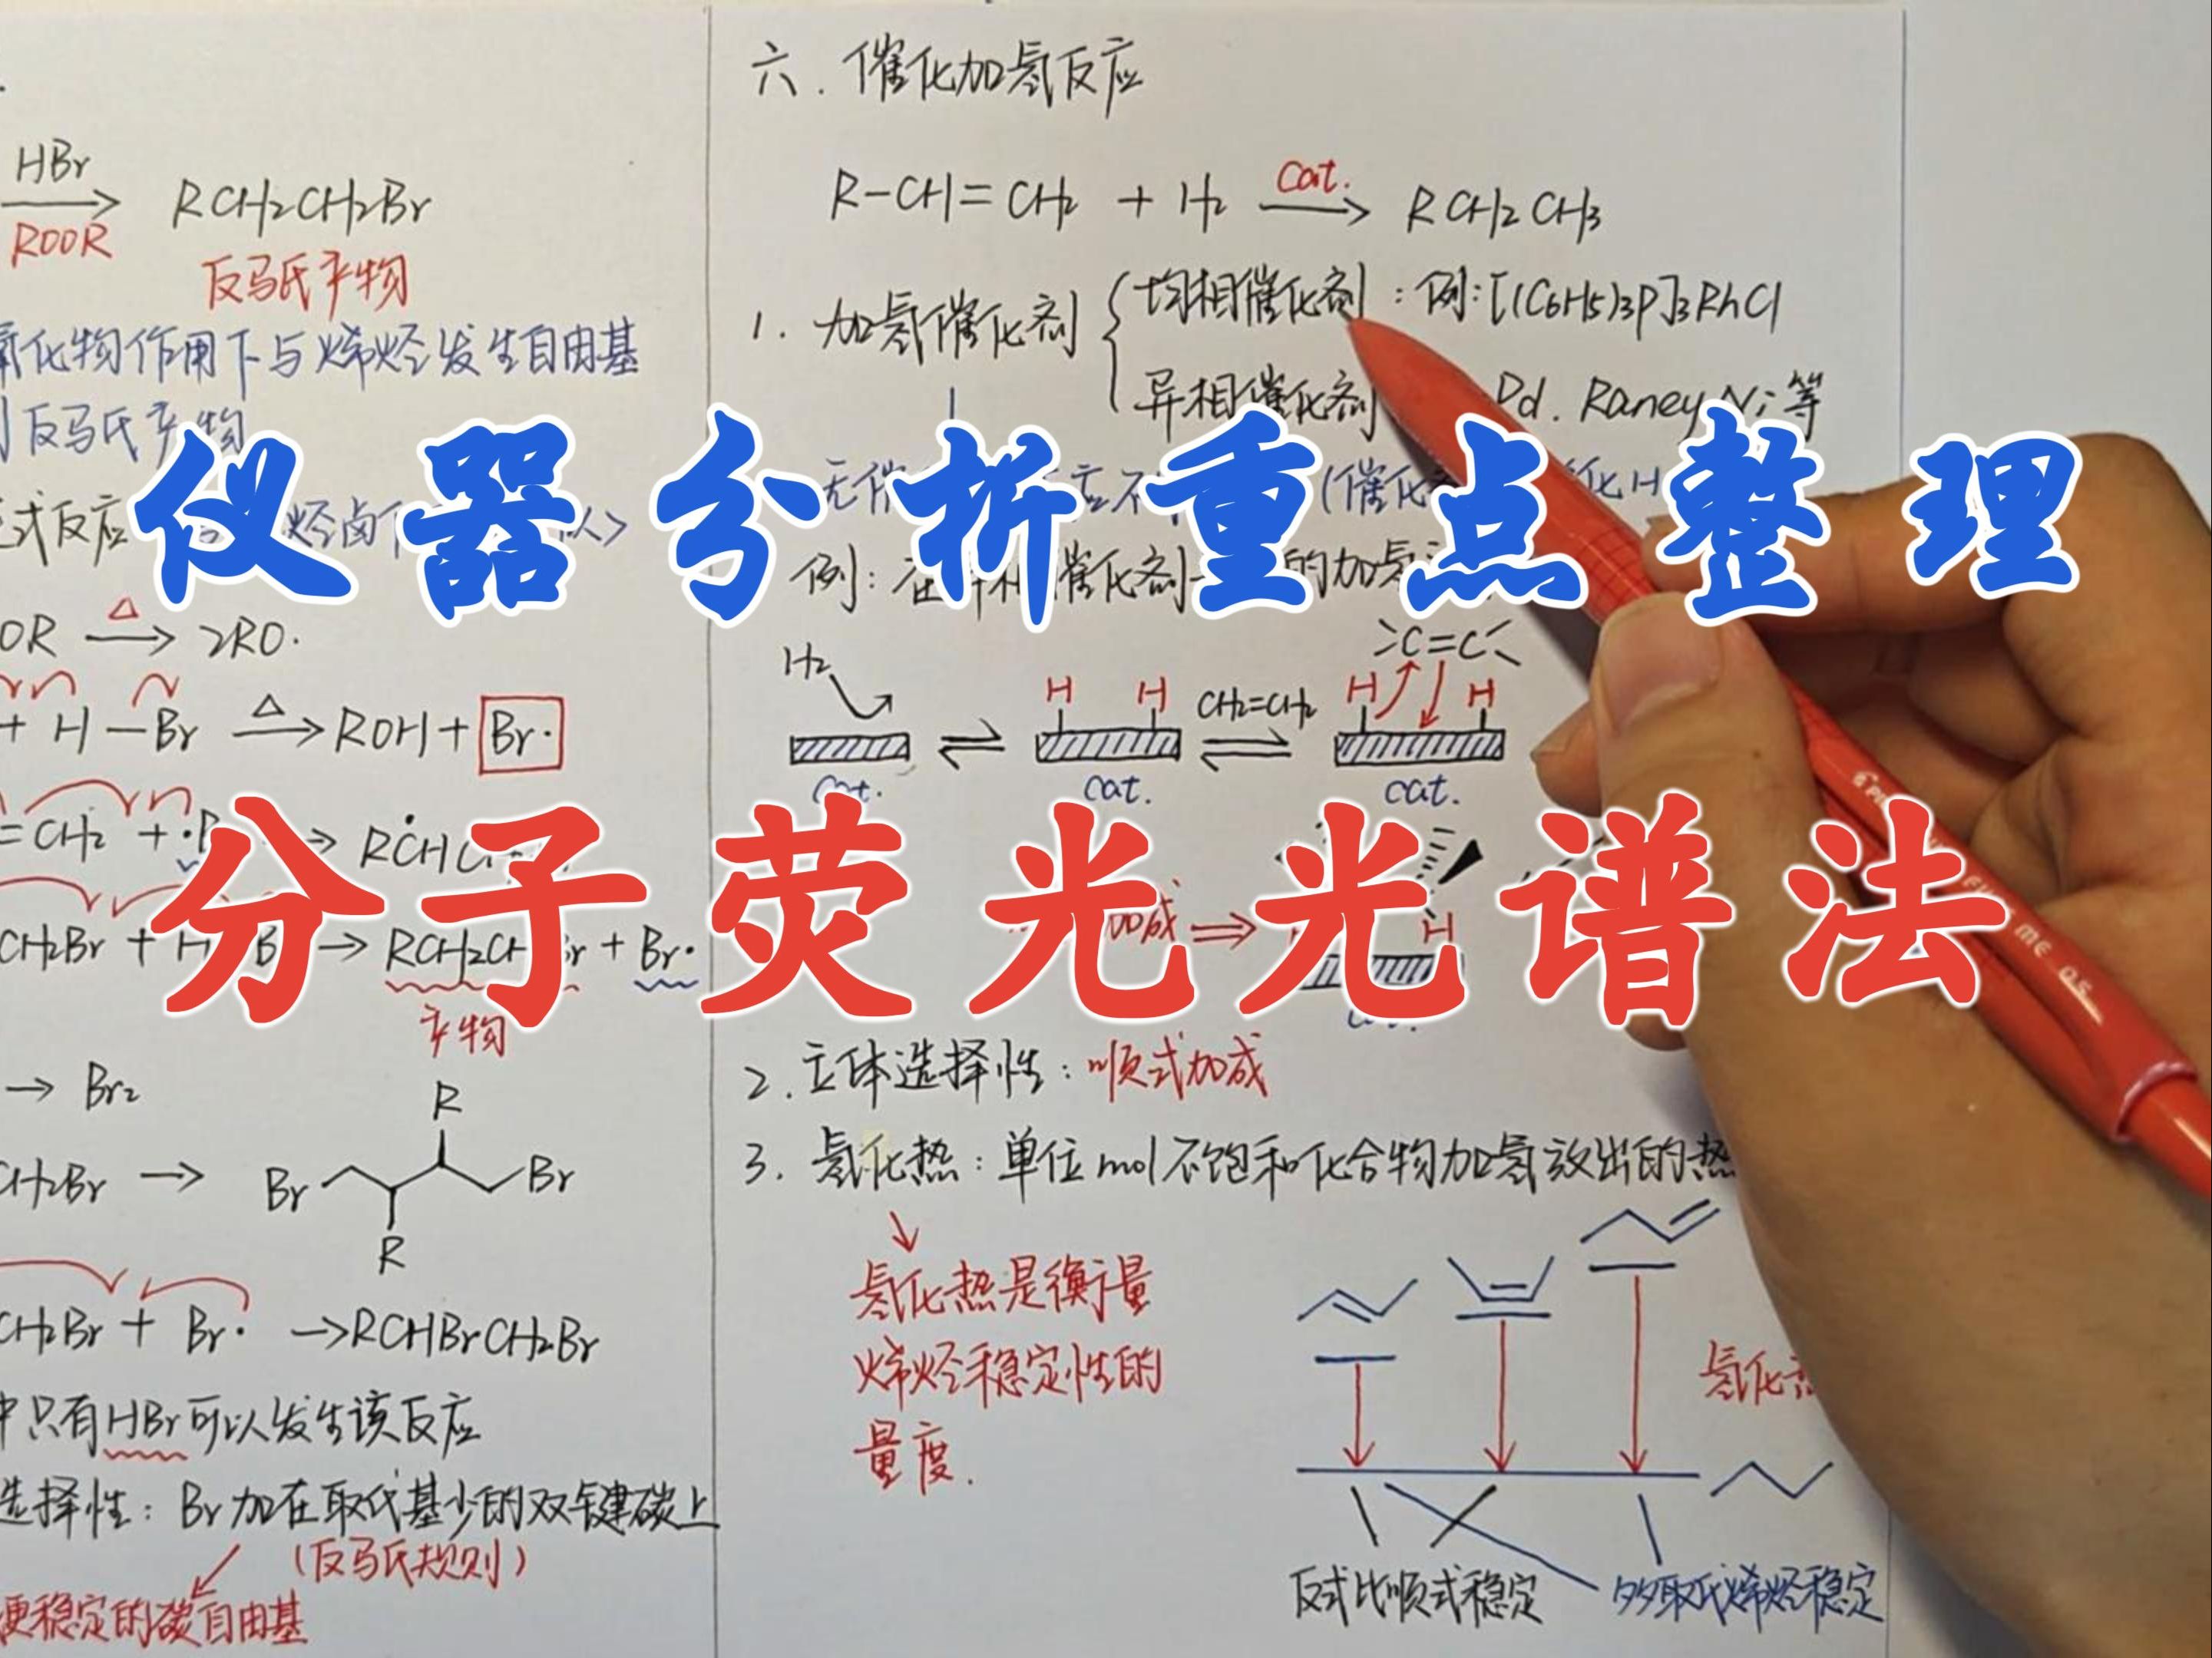 HBr
ROOR
RCH₂CH₂Br
反马氏产物
氧化物作用下与烯烃发生自由基
反马氏产物
式反应
OR △→ 2RO·
+ H—Br △→ ROH + Br·
=CH₂ +
CH₂Br +
→ RCH₂CH Br + Br·
产物
→ Br₂
R
CH₂Br → Br Br
R
CH₂Br + Br· → RCHBrCH₂Br
中只有HBr可以发生该反应
选择性：Br加在取代基少的双键碳上
（反马氏规则）
稳定的碳自由基
六．催化加氢反应
R-CH=CH₂ + H₂ cat.→ RCH₂CH₃
1．加氢催化剂
均相催化剂：例：[(C₆H₅)₃P]₃RhCl
异相催化剂 Pd．Raney Ni等
仪器分析重点整理
H₂ H H CH₂=CH₂ H H
>C=C<
cat. cat. cat.
分子荧光光谱法
H
2．立体选择性：顺式加成
3．氢化热：单位mol不饱和化合物加氢放出的热
氢化热是衡量
烯烃稳定性的
量度．
氢化
反式比顺式稳定
多取代烯烃稳定